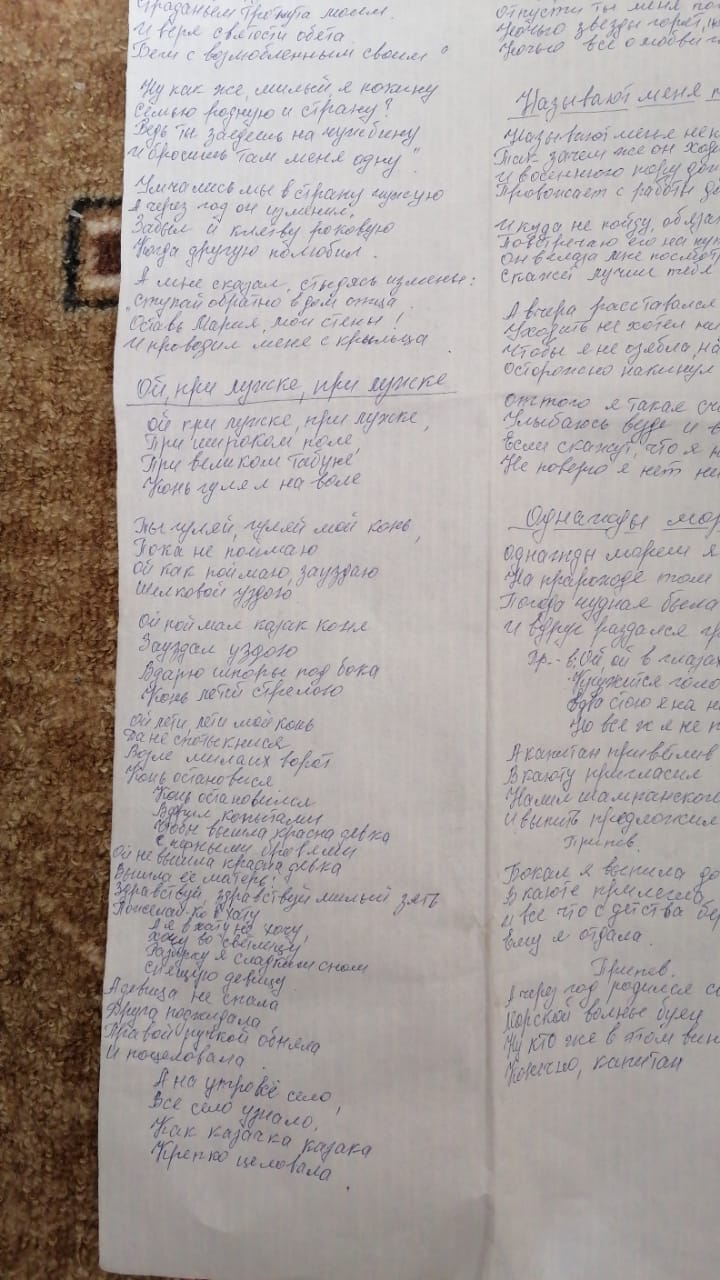 страданьем тронута моим
И веря святости обета
Беги с возлюбленным своим"
Ну как же, милый, я покину
Семью родную и страну?
Ведь ты заедешь на чужбину
И бросишь там меня одну"
Умчались мы в страну чужую
А через год он изменил,
Забыл и клятву роковую
Когда другую полюбил.
А мне сказал, стыдясь измены:
"Ступай обратно в дом отца
Оставь Мария, мои стены!
И проводил меня с крыльца.
Ой, при лужке, при лужке
Ой при лужке, при лужке,
При широком поле,
При великом табуне,
Конь гулял на воле
Ты гуляй, гуляй мой конь,
Пока не поймаю
Ой как поймаю, зауздаю
Шелковой уздою
Ой поймал казак коня
Зауздал уздою
Вдарю шпоры под бока
Конь летит стрелою
Ой лети, лети мой конь
Да не спотыкнися
Возле милаих ворот
Конь остановися
Конь остановился
Вдрил копытами
Чтобы вышла красна девка
С черными бровями
Ой не вышла красна девка
Вышла ее матерь:
Здравствуй, здравствуй милый зять
Пожелай-ко в хату
А я в хату не хочу,
Хочу во светлицу
Разбужу я сладким сном
Спящую девицу
А девица не спала
Друга поджидала
Правой ручкой обняла
И поцеловала.
А на утро всё село,
Все село узнало,
Как казачка казака
Крепко целовала.
Отпусти ты меня
Ночью звезды горят,
Ночью все о любви
Называют меня
Называют меня
Так зачем же он
И в осеннюю пору
Провожает с работы
И куда не пойду,
Повстречаю его на
Он в глаза мне
Скажет лучше тебя
А вчера расставался
Уходить не хотел
Чтобы я не озябла,
Осторожно накинул
От того я такая
Улыбаюсь везде и
Если скажут, что я
Не поверю я нет
Однажды
Однажды морем я
На пароходе том
Погода чудная была
И вдруг раздался
Пр.-в: Ой ой в глазах
Кружится
Едва стою я на
Но все ж я не
А капитан приветлив
В каюту пригласил
Налил шампанского
И выпить предложил
Припев.
Бокал я выпила до
В каюте прилегла
И все что с детства
Ему я отдала.
Припев.
А через год родился
Морской волны буян
Ну кто же в том
Конечно, капитан